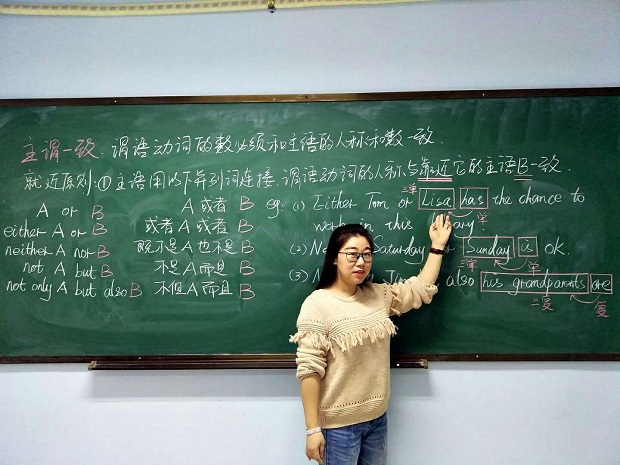 主谓一致:谓语动词的数必须和主语的人称和数一致.
就近原则:①主语用以下并列词连接,谓语动词的人称与靠近它的主语B一致.
A or B A或者B eg: (1) Either Tom or Lisa has the chance to
三单 单
either A or B 或者A或者B work in this
neither A nor B 既不是A也不是B (2) Saturday Sunday is OK.
三单 单
not A but B 不是A而且B (3) also his grandparents are
not only A but also B 不但A而且B
三复 复